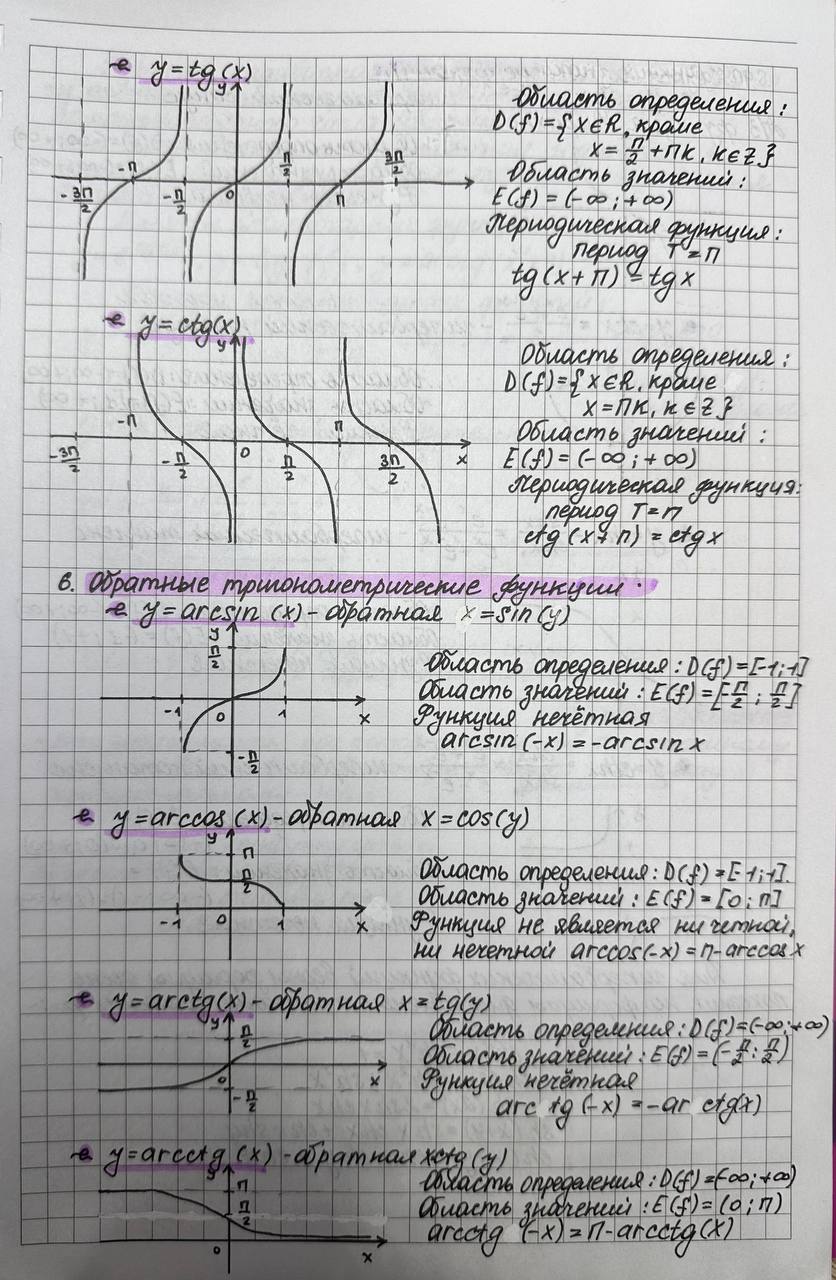 y = tg(x)
y
-3π/2 -π -π/2 0 π/2 π 3π/2
Область определения:
D(f) = {x∈R, кроме
x = π/2 + πk, k∈Z}
Область значений:
E(f) = (-∞; +∞)
Периодическая функция:
период T = π
tg(x+π) = tgx
y = ctg(x)
y
-3π/2 -π -π/2 0 π/2 π 3π/2 x
Область определения:
D(f) = {x∈R, кроме
x = πk, k∈Z}
Область значений:
E(f) = (-∞; +∞)
Периодическая функция:
период T = π
ctg(x+π) = ctgx
6. Обратные тригонометрические функции.
y = arcsin(x) - обратная x = sin(y)
y
π/2
-1 0 1 x
-π/2
Область определения: D(f) = [-1;1]
Область значений: E(f) = [-π/2; π/2]
Функция нечётная
arcsin(-x) = -arcsinx
y = arccos(x) - обратная x = cos(y)
y
π
π/2
-1 0 1 x
Область определения: D(f) = [-1;1].
Область значений: E(f) = [0; π]
Функция не является ни четной,
ни нечетной arccos(-x) = π - arccosx
y = arctg(x) - обратная x = tg(y)
y
π/2
0 x
-π/2
Область определения: D(f) = (-∞; +∞)
Область значений: E(f) = (-π/2; π/2)
Функция нечётная
arc tg(-x) = -ar ctg(x)
y = arcctg(x) - обратная xctg(y)
y
π
π/2
0 x
Область определения: D(f) = (-∞; +∞)
Область значений: E(f) = (0; π)
arcctg(-x) = π - arcctg(x)